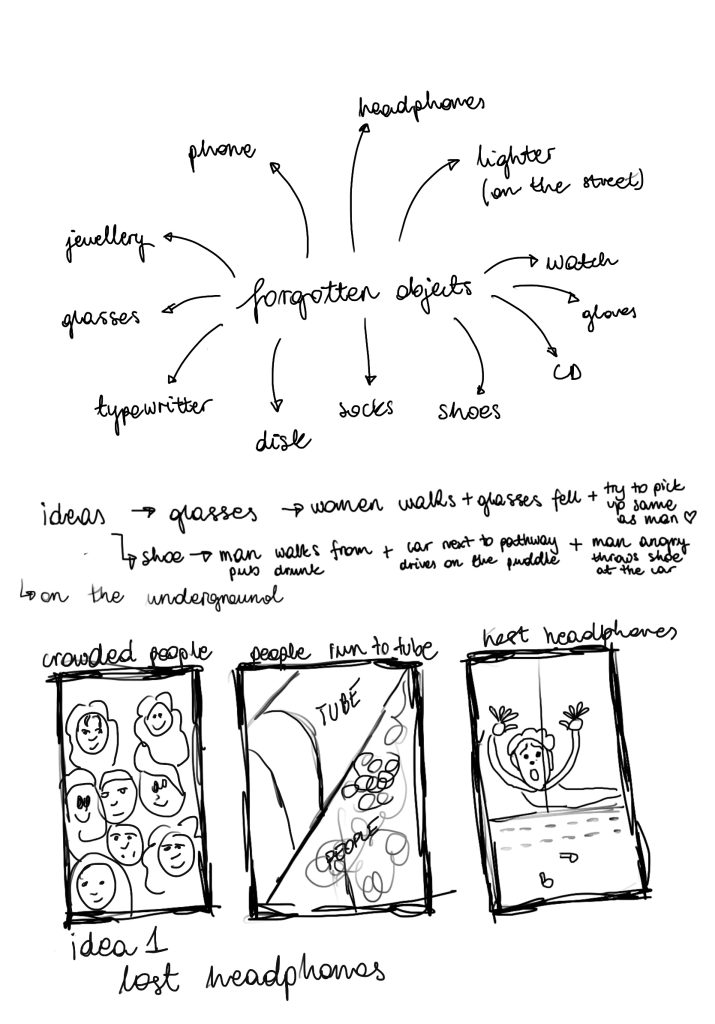 headphones
phone
lighter
(on the street)
jewellery
watch
forgotten objects
glasses
gloves
CD
typewritter
socks
shoes
disk
ideas → glasses → women walks + glasses fell + try to pick
up same
as man ♡
↳ shoe → man walks from + car next to pathway + man angry
pub drunk drives on the puddle throws shoe
at the car
↳ on the underground
crowded people
people run to tube
lost headphones
TUBE
PEOPLE
idea 1
lost headphones